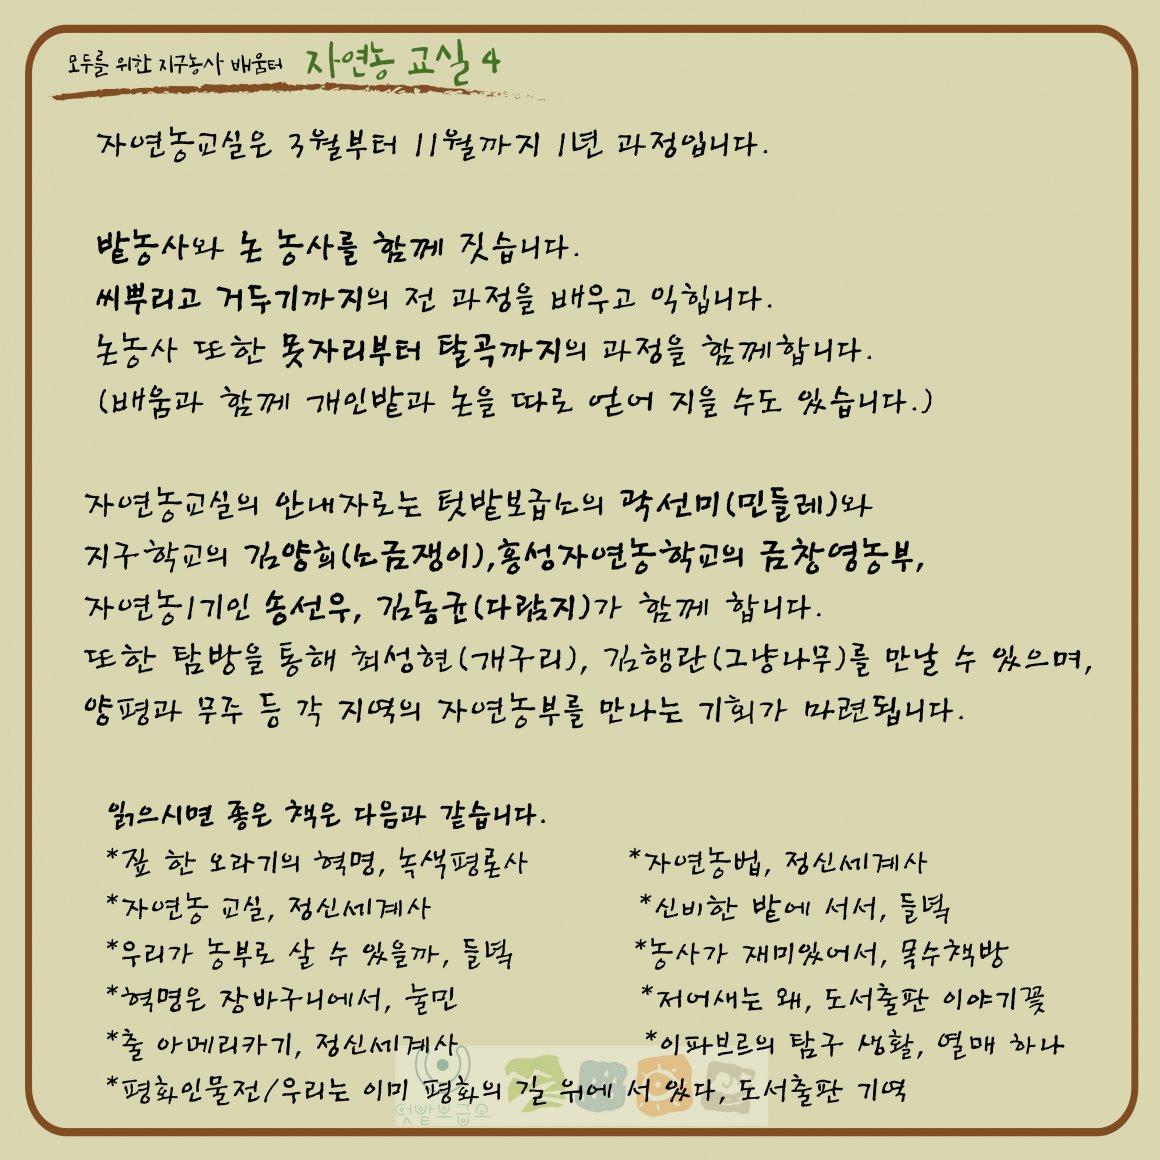 모두를 위한 지구농사 배움터 자연농 교실 4
자연농교실은 3월부터 11월까지 1년 과정입니다.
밭농사와 논 농사를 함께 짓습니다.
씨뿌리고 거두기까지의 전 과정을 배우고 익힙니다.
논농사 또한 못자리부터 탈곡까지의 과정을 함께합니다.
(배움과 함께 개인밭과 논을 따로 얻어 지을 수도 있습니다.)
자연농교실의 안내자로는 텃밭보급소의 곽선미(민들레)와
지구학교의 김양희(소금쟁이),홍성자연농학교의 금창영농부,
자연농1기인 송선우, 김동균(다람지)가 함께 합니다.
또한 탐방을 통해 최성현(개구리), 김행란(그냥나무)를 만날 수 있으며,
양평과 무주 등 각 지역의 자연농부를 만나는 기회가 마련됩니다.
읽으시면 좋은 책은 다음과 같습니다.
*짚 한 오라기의 혁명, 녹색평론사 *자연농법, 정신세계사
*자연농 교실, 정신세계사 *신비한 밭에 서서, 들녘
*우리가 농부로 살 수 있을까, 들녘 *농사가 재미있어서, 목수책방
*혁명은 장바구니에서, 눌민 *저어새는 왜, 도서출판 이야기꽃
*출 아메리카기, 정신세계사 *이파브르의 탐구 생활, 열매 하나
*평화인물전/우리는 이미 평화의 길 위에 서 있다, 도서출판 기역
텃밭보급소